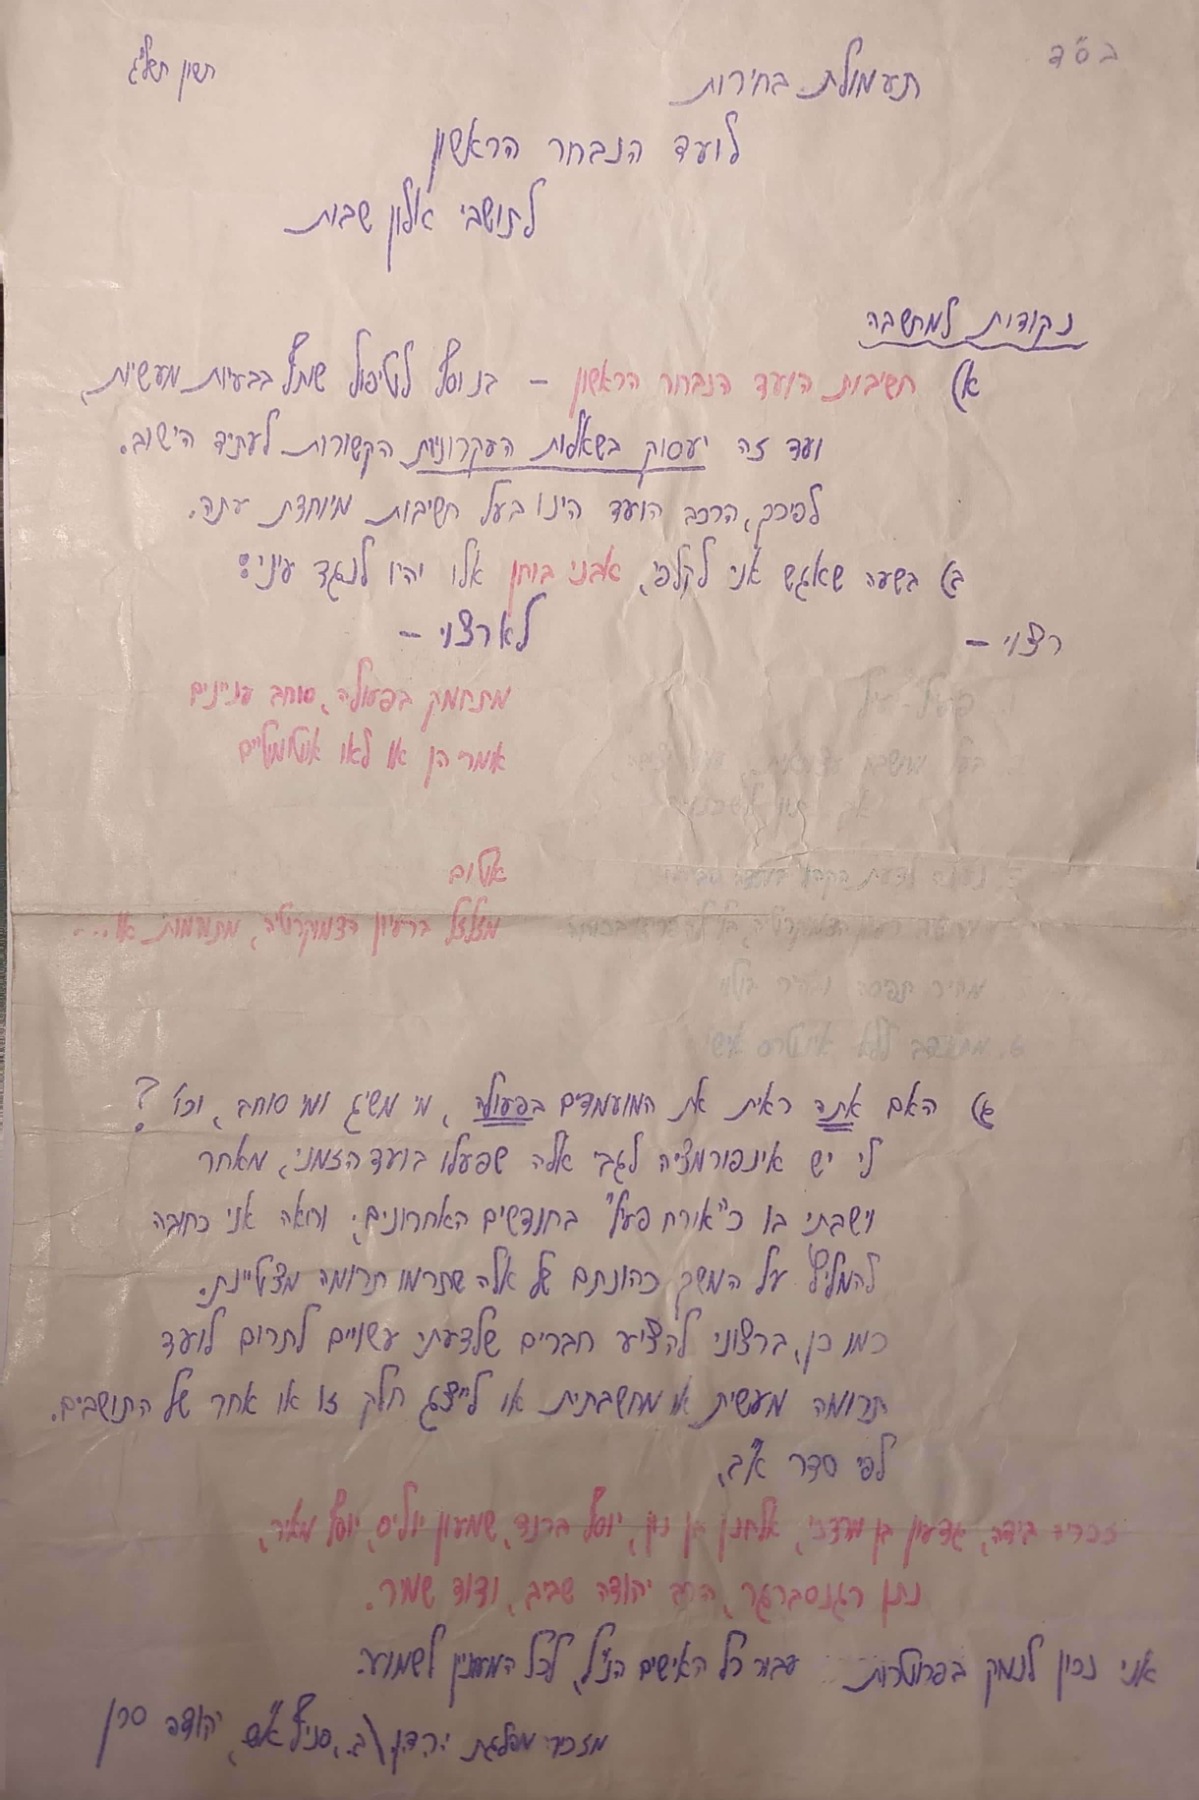 בס"ד
חשון תשל"ג
תעמולת בחירות
לועד הנבחר הראשון
לתושבי אלון שבות
נקודות למחשבה
א) חשיבות הועד הנבחר הראשון - בנוסף לטיפול שוטף בבעיות מעשיות,
ועד זה יעסוק בשאלות העקרוניות הקשורות לעתיד הישוב.
לפיכך, הרכב הועד הינו בעל חשיבות מיוחדת עתה.
ב) בשעה שאגש אני לקלפי, אבני בוחן אלו יהיו לנגד עיני:
רצוי - לא רצוי -
מתחמק בפעולה, סוחב עניינים
אומר הן או לאו אוטומטיים
בעל מחשבה עצמאית
אטום
מזלזל ברעיון הדמוקרטיה, מתנמנם או...
ז. מתנדב ללא אינטרס אישי
ג) האם אתה ראית את המועמדים בפעולה, מי משיג ומי סוחב, וכו' ?
לי יש אינפורמציה לגבי אלה שפעלו בועד הזמני, מאחר
וישבתי בו כ"אורח פעיל" בחודשים האחרונים; ורואה אני כחובה
להמליץ על המשך כהונתם של אלה שתרמו תרומה מצטיינת.
כמו כן, ברצוני להציע חברים שלדעתי עשויים לתרום לועד
תרומה מעשית או מחשבתית או לייצג חלק זו או אחר של התושבים.
לפי סדר א"ב,
זכריה בידה, גדעון בן מרדכי, אלחנן בן נון, יוסף ברנד, שמעון יוליס, יוסף מאיר,
נתן רגנסברגר, הרב יהודה שביב, ודוד שמיר.
אני נכון לנמק בפרוטרוט עבור כל האישים הנ"ל, לכל המעונין לשמוע.
מזכיר מפלגת ירדן\ב, סניף א"ש, יהודה סרן